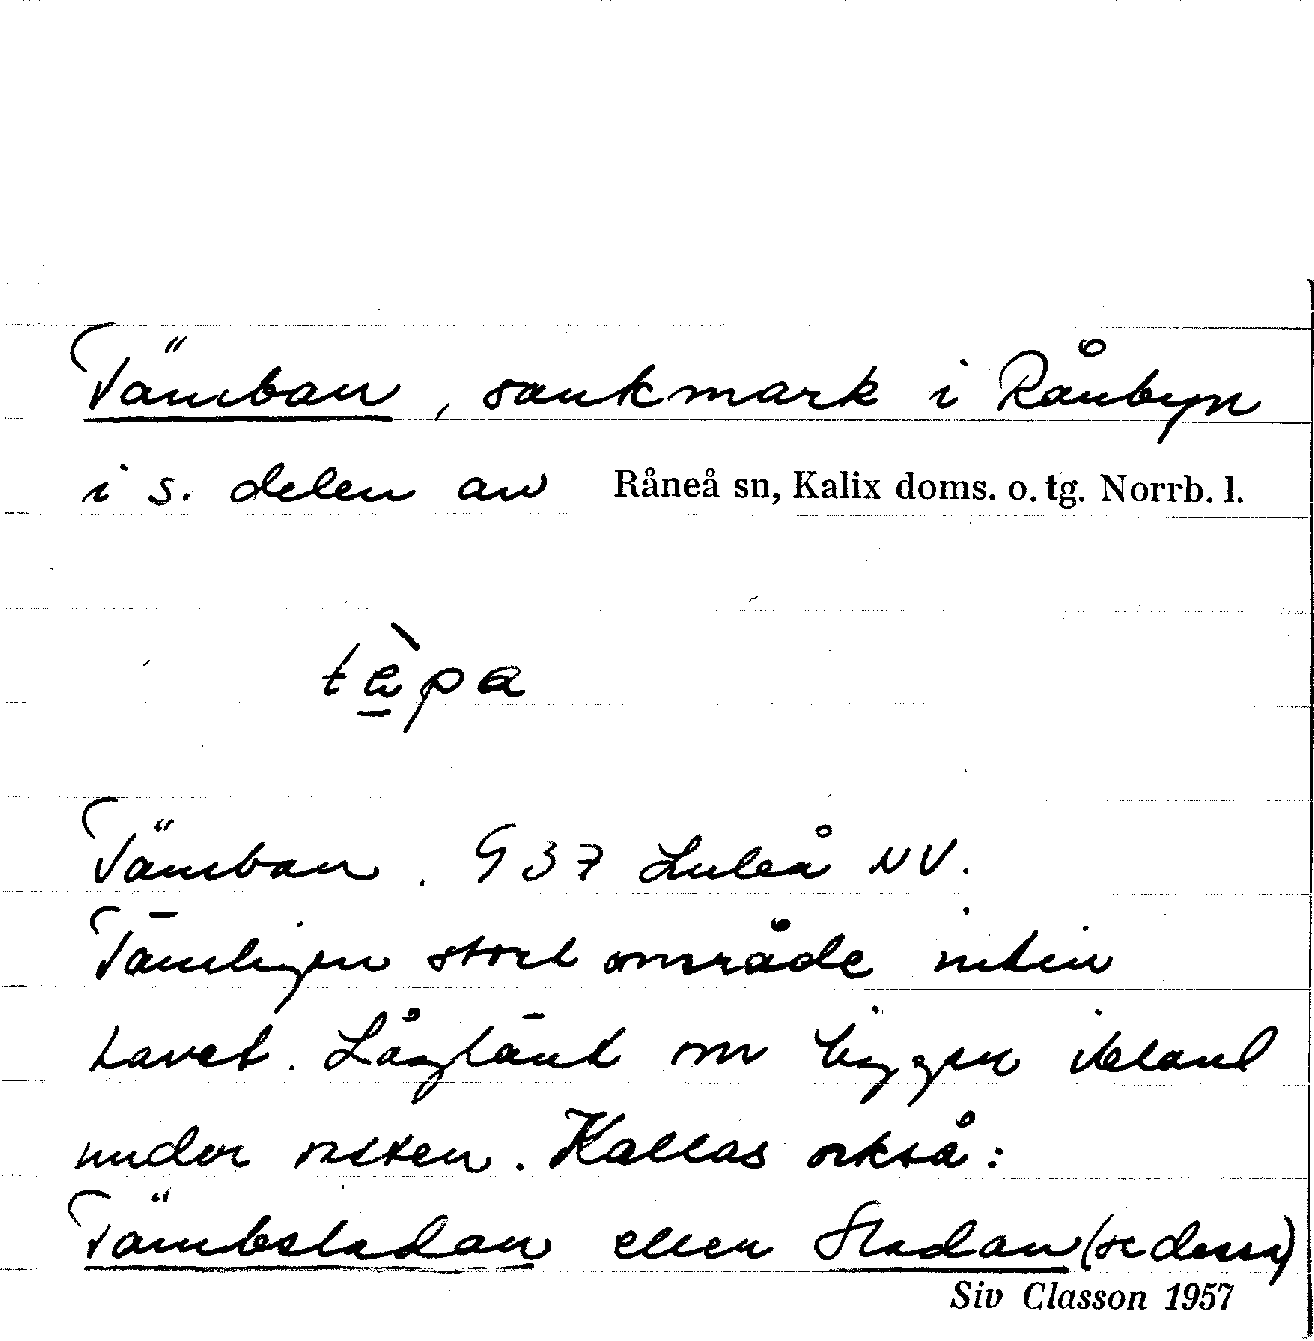 Tämban, sankmark i Rånbyn
i s. delen av Råneå sn, Kalix doms. o. tg. Norrb. l.
Tämban. 937 Luleå NV.
Tämligen stort område intin
havet. Låglänt om ligger ibland
under vatten. Kallas också:
Tämbsladan eller Sladan (se dessa)
Siv Classon 1957